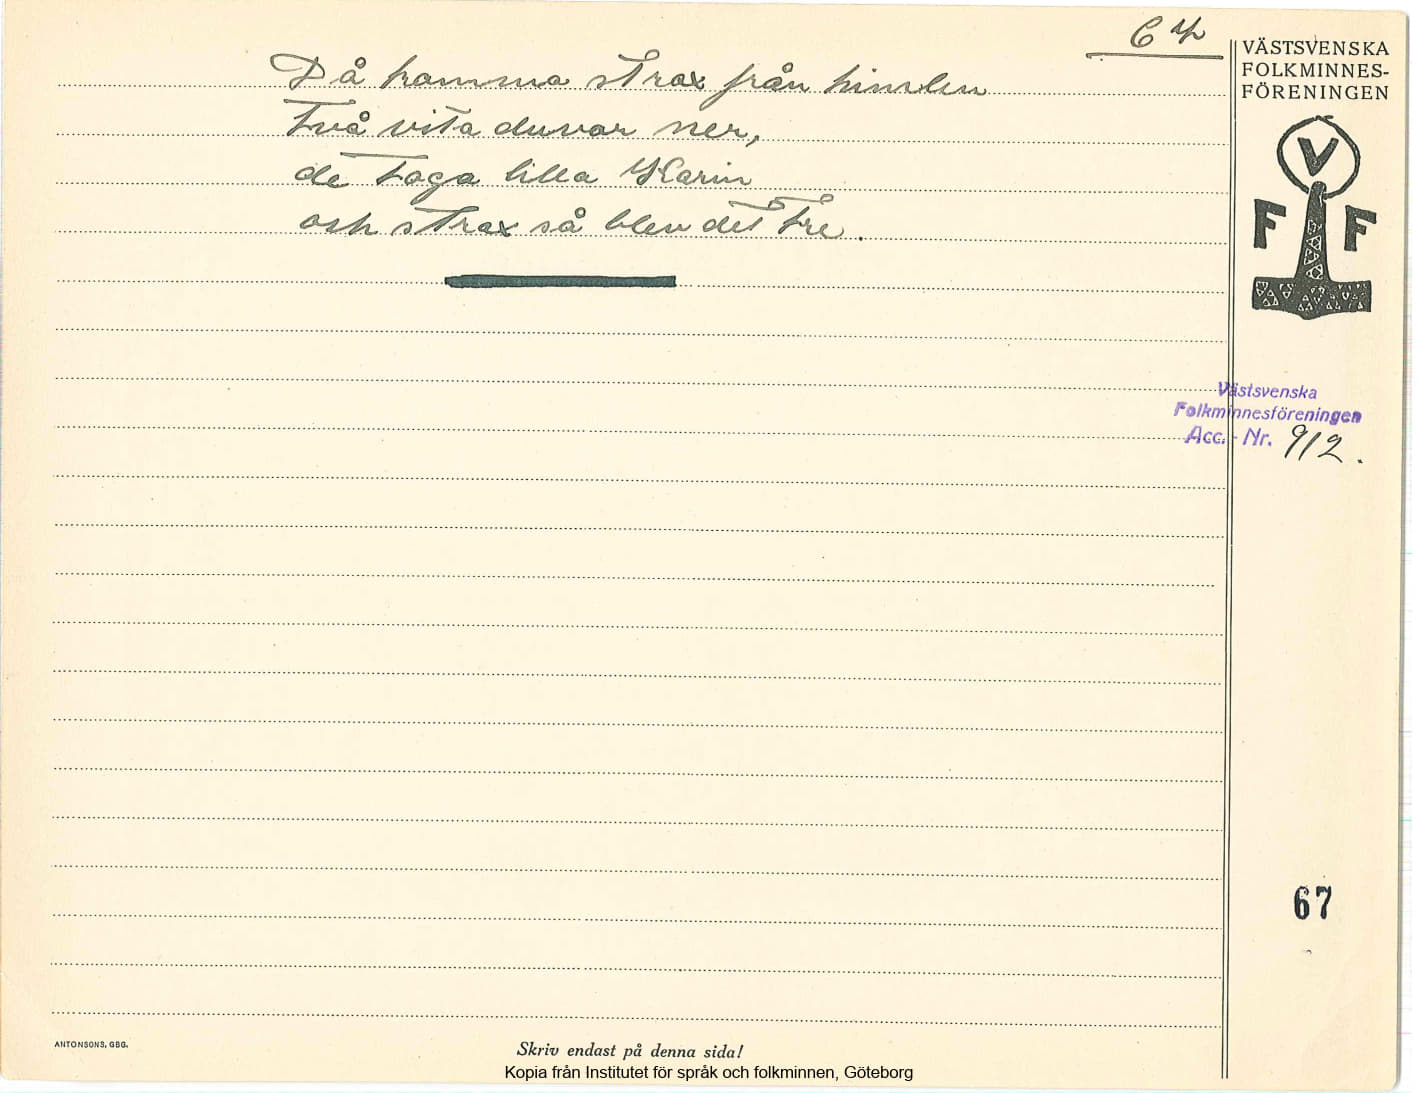 VÄSTSVENSKA
FOLKMINNES-
FÖRENINGEN
Då komma strax från himlen
två vita duvor ner,
de taga lilla Karin
och strax så blev det tre.
V
F F
Västsvenska
Folkminnesföreningen
Acc. - Nr. 912.
67
ANTONSONS, GBG.
Skriv endast på denna sida!
Kopia från Institutet för språk och folkminnen, Göteborg